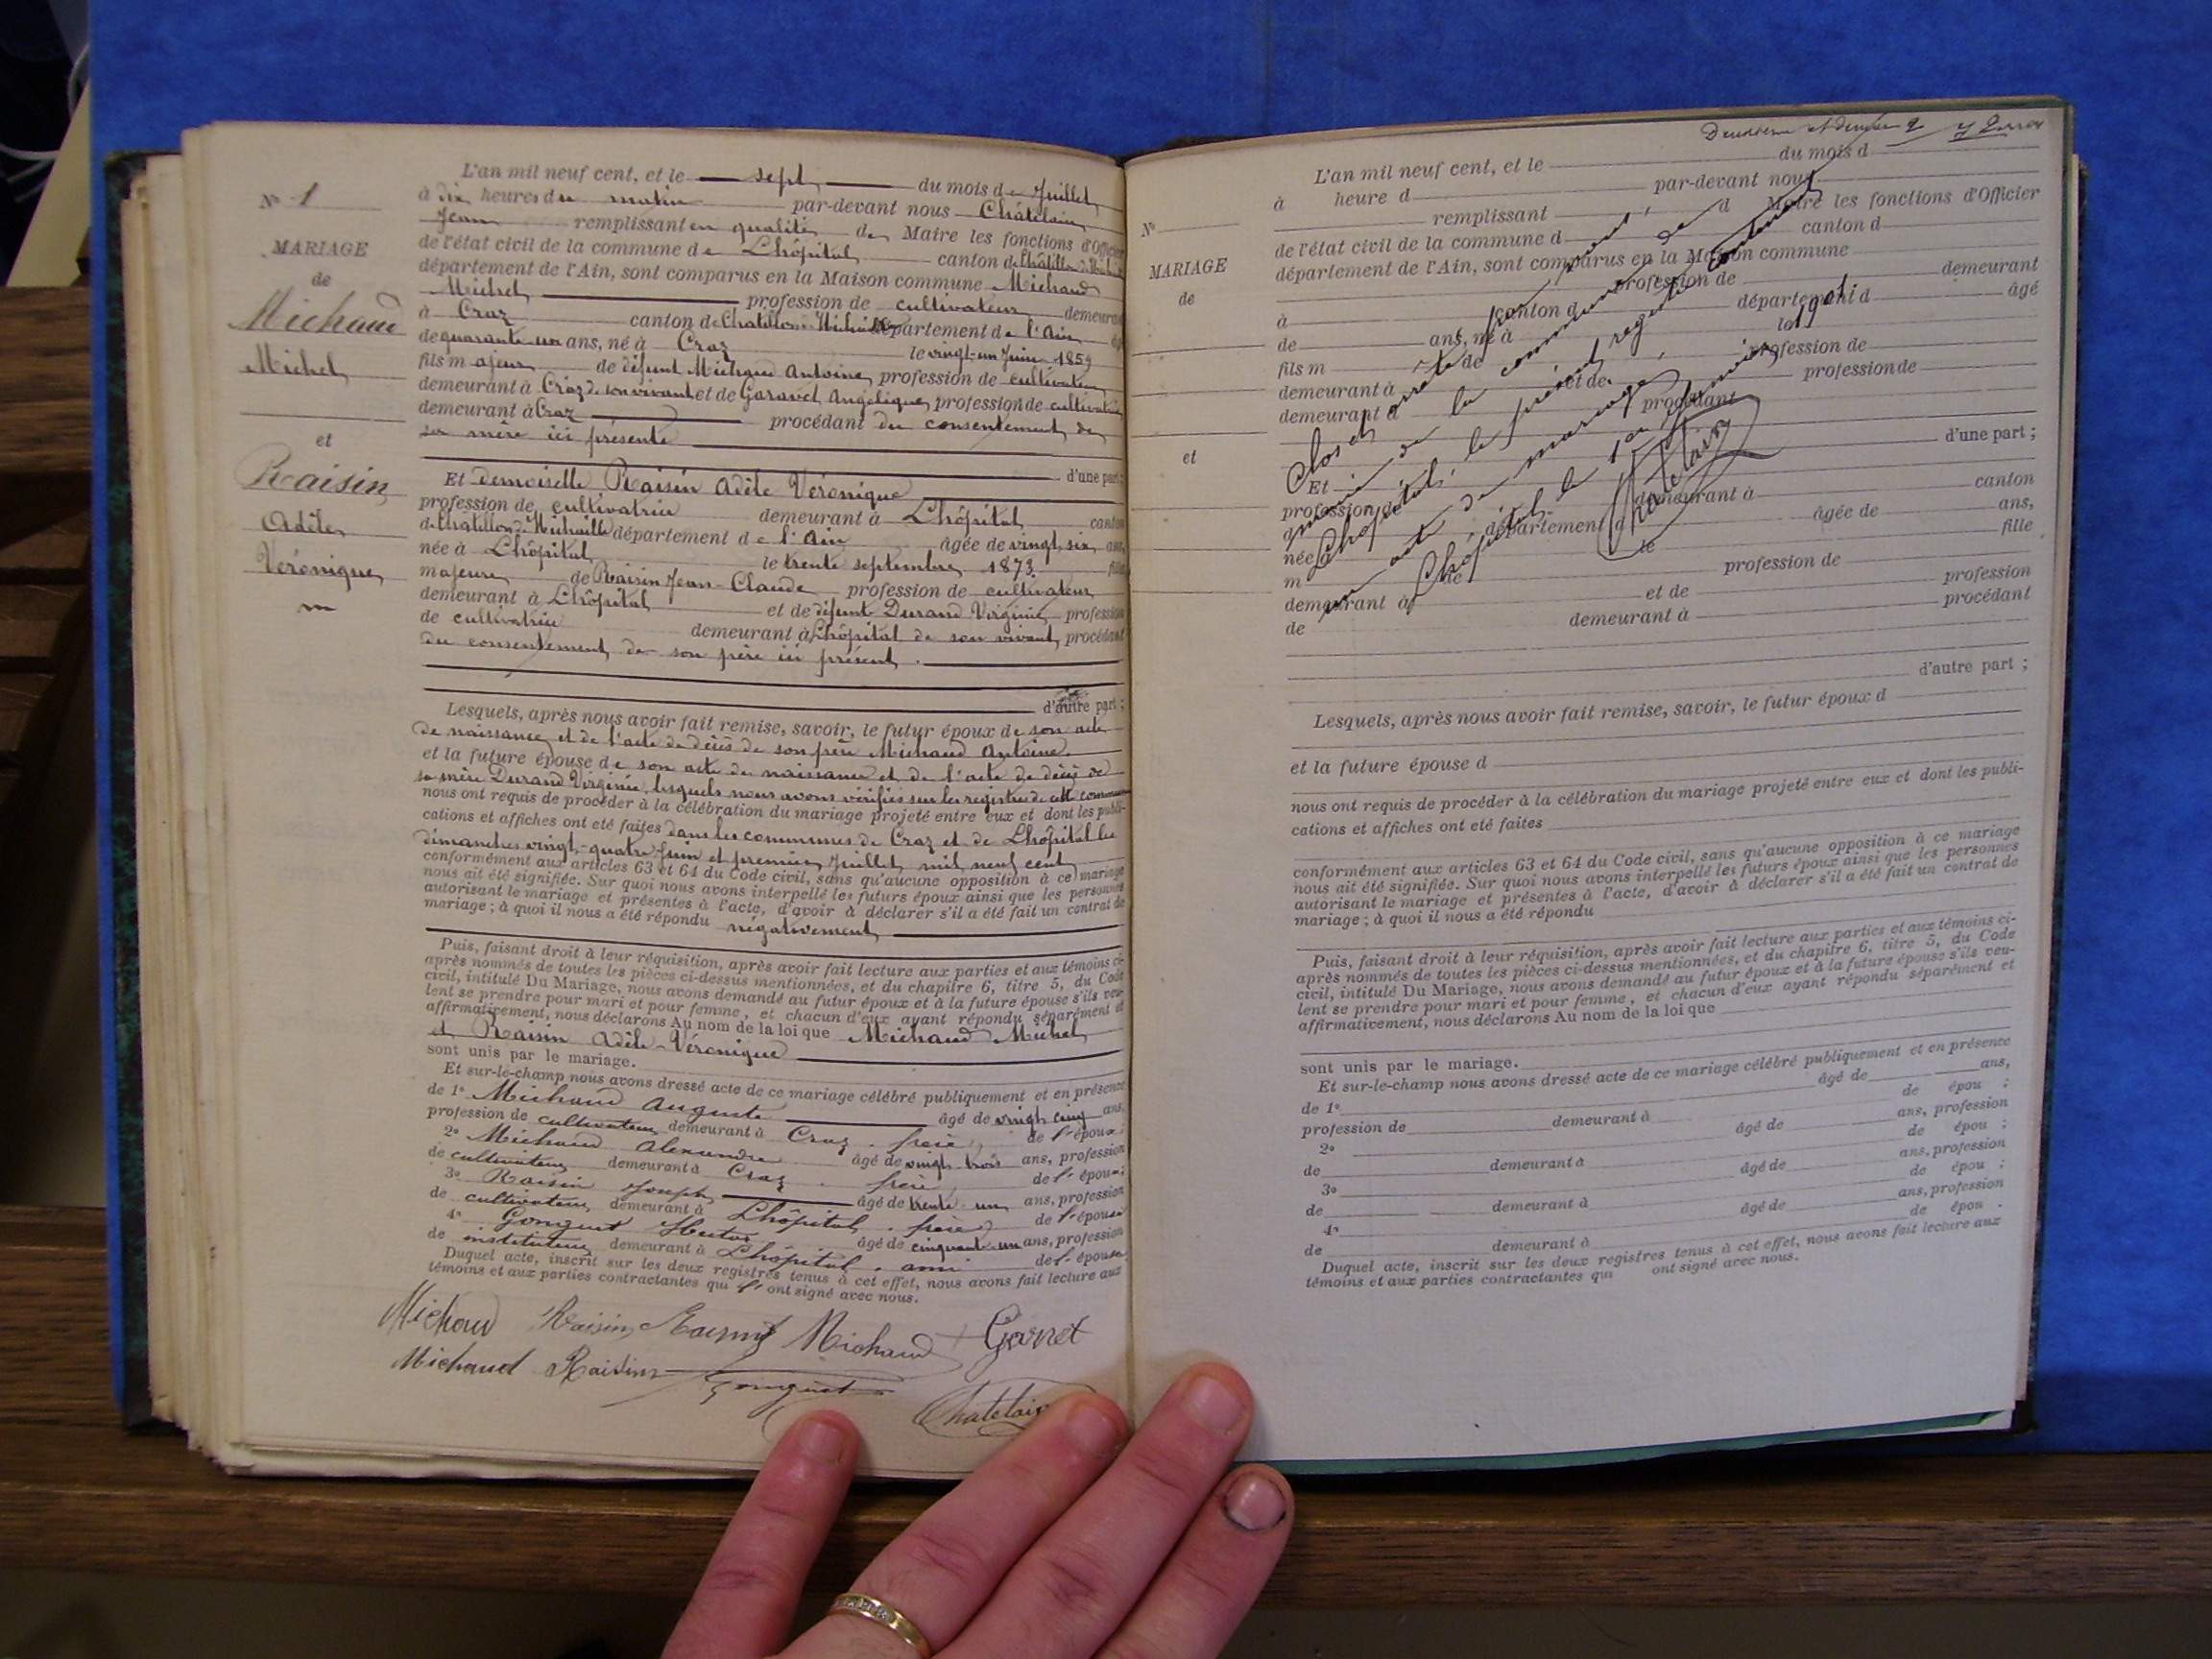 N° 1
MARIAGE
de
Michaud
Michel
et
Raisin
Adèle
Véronique
L'an mil neuf cent, et le sept du mois de Juillet
à dix heures du matin par-devant nous Châtelain
Jean remplissant en qualité de Maire les fonctions d'Officier
de l'état civil de la commune de Lhôpital canton de Châtillon de Michaille
département de l'Ain, sont comparus en la Maison commune Michaud
Michel profession de cultivateur demeurant
à Craz canton de Chatillon de Michaille département de l'Ain âgé
de quarante un ans, né à Craz le vingt-un Juin 1859
fils majeur de défunt Michaud Antoine, profession de cultivateur
demeurant à Craz de son vivant et de Garavet Angélique, profession de cultivatrice
demeurant à Craz procédant du consentement de
sa mère ici présente
d'une part;
Et demoiselle Raisin Adèle Véronique
profession de cultivatrice demeurant à Lhôpital canton
de Chatillon de Michaille département de l'Ain âgée de vingt six ans,
née à Lhôpital le trente septembre 1873 fille
majeure de Raisin Jean-Claude profession de cultivateur
demeurant à Lhôpital et de défunt Durand Virginie profession
de cultivatrice demeurant à Lhôpital de son vivant, procédant
du consentement de son père ici présent.
d'autre part;
Lesquels, après nous avoir fait remise, savoir, le futur époux de son acte
de naissance et de l'acte de décès de son père Michaud Antoine
et la future épouse de son acte de naissance et de l'acte de décès de
sa mère Durand Virginie, lesquels nous avons vérifiés sur les registres de cette commune
nous ont requis de procéder à la célébration du mariage projeté entre eux et dont les publi-
cations et affiches ont été faites dans les communes de Craz et de Lhôpital les
dimanches vingt-quatre Juin et premier Juillet mil neuf cent
conformément aux articles 63 et 64 du Code civil, sans qu'aucune opposition à ce mariage
nous ait été signifiée. Sur quoi nous avons interpellé les futurs époux ainsi que les personnes
autorisant le mariage et présentes à l'acte, d'avoir à déclarer s'il a été fait un contrat de
mariage; à quoi il nous a été répondu négativement
Puis, faisant droit à leur réquisition, après avoir fait lecture aux parties et aux témoins ci-
après nommés de toutes les pièces ci-dessus mentionnées, et du chapitre 6, titre 5, du Code
civil, intitulé Du Mariage, nous avons demandé au futur époux et à la future épouse s'ils veu-
lent se prendre pour mari et pour femme, et chacun d'eux ayant répondu séparément et
affirmativement, nous déclarons Au nom de la loi que Michaud Michel
et Raisin Adèle-Véronique
sont unis par le mariage.
Et sur-le-champ nous avons dressé acte de ce mariage célébré publiquement et en présence
de 1° Michaud Auguste âgé de vingt cinq ans,
profession de cultivateur demeurant à Craz, frère de l'époux;
2° Michaud Alexandre âgé de vingt trois ans, profession
de cultivateur demeurant à Craz, frère de l'époux;
3° Raisin Joseph âgé de trente un ans, profession
de cultivateur demeurant à Lhôpital, frère de l'épouse
4° Gonguet âgé de cinquante un ans, profession
de instituteur demeurant à Lhôpital, ami de l'épouse.
Duquel acte, inscrit sur les deux registres tenus à cet effet, nous avons fait lecture aux
témoins et aux parties contractantes qui l'ont signé avec nous.
Michaud Raisin Michaud
Michaud Raisin Gonguet
Chatelain
N°
MARIAGE
de
et
L'an mil neuf cent, et le du mois d
à heure d par-devant nous
remplissant d Maire les fonctions d'Officier
de l'état civil de la commune d canton d
département de l'Ain, sont comparus en la Maison commune
profession de demeurant
à canton d département d âgé
de ans, né à le
fils m de profession de
demeurant à et de profession de
demeurant à procédant
d'une part;
Et
profession d demeurant à canton
d département d âgée de ans,
née à le fille
m de profession de
demeurant à et de profession
de demeurant à procédant
d'autre part;
Clos et arrêté par nous, de
mairie de la commune de
Lhôpital, le présent registre contenant
un acte de mariage,
Lhôpital le 1er Janvier 1901
Chatelain
Lesquels, après nous avoir fait remise, savoir, le futur époux d
et la future épouse d
nous ont requis de procéder à la célébration du mariage projeté entre eux et dont les publi-
cations et affiches ont été faites
conformément aux articles 63 et 64 du Code civil, sans qu'aucune opposition à ce mariage
nous ait été signifiée. Sur quoi nous avons interpellé les futurs époux ainsi que les personnes
autorisant le mariage et présentes à l'acte, d'avoir à déclarer s'il a été fait un contrat de
mariage; à quoi il nous a été répondu
Puis, faisant droit à leur réquisition, après avoir fait lecture aux parties et aux témoins ci-
après nommés de toutes les pièces ci-dessus mentionnées, et du chapitre 6, titre 5, du Code
civil, intitulé Du Mariage, nous avons demandé au futur époux et à la future épouse s'ils veu-
lent se prendre pour mari et pour femme, et chacun d'eux ayant répondu séparément et
affirmativement, nous déclarons Au nom de la loi que
sont unis par le mariage.
Et sur-le-champ nous avons dressé acte de ce mariage célébré publiquement et en présence
de 1° âgé de ans,
profession de demeurant à de épou ;
2° âgé de ans, profession
de demeurant à de épou ;
3° âgé de ans, profession
de demeurant à de épou ;
4° âgé de ans, profession
de demeurant à de épou .
Duquel acte, inscrit sur les deux registres tenus à cet effet, nous avons fait lecture aux
témoins et aux parties contractantes qui ont signé avec nous.